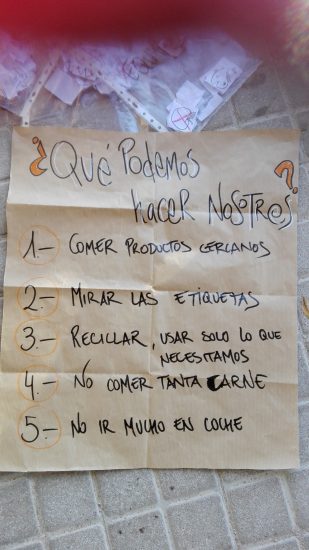 ¿Qué Podemos
hacer Nosotr@s?
1.- Comer productos cercanos
2.- Mirar las etiquetas
3.- Reciclar, usar solo lo que
necesitamos
4.- No comer tanta carne
5.- No ir mucho en coche